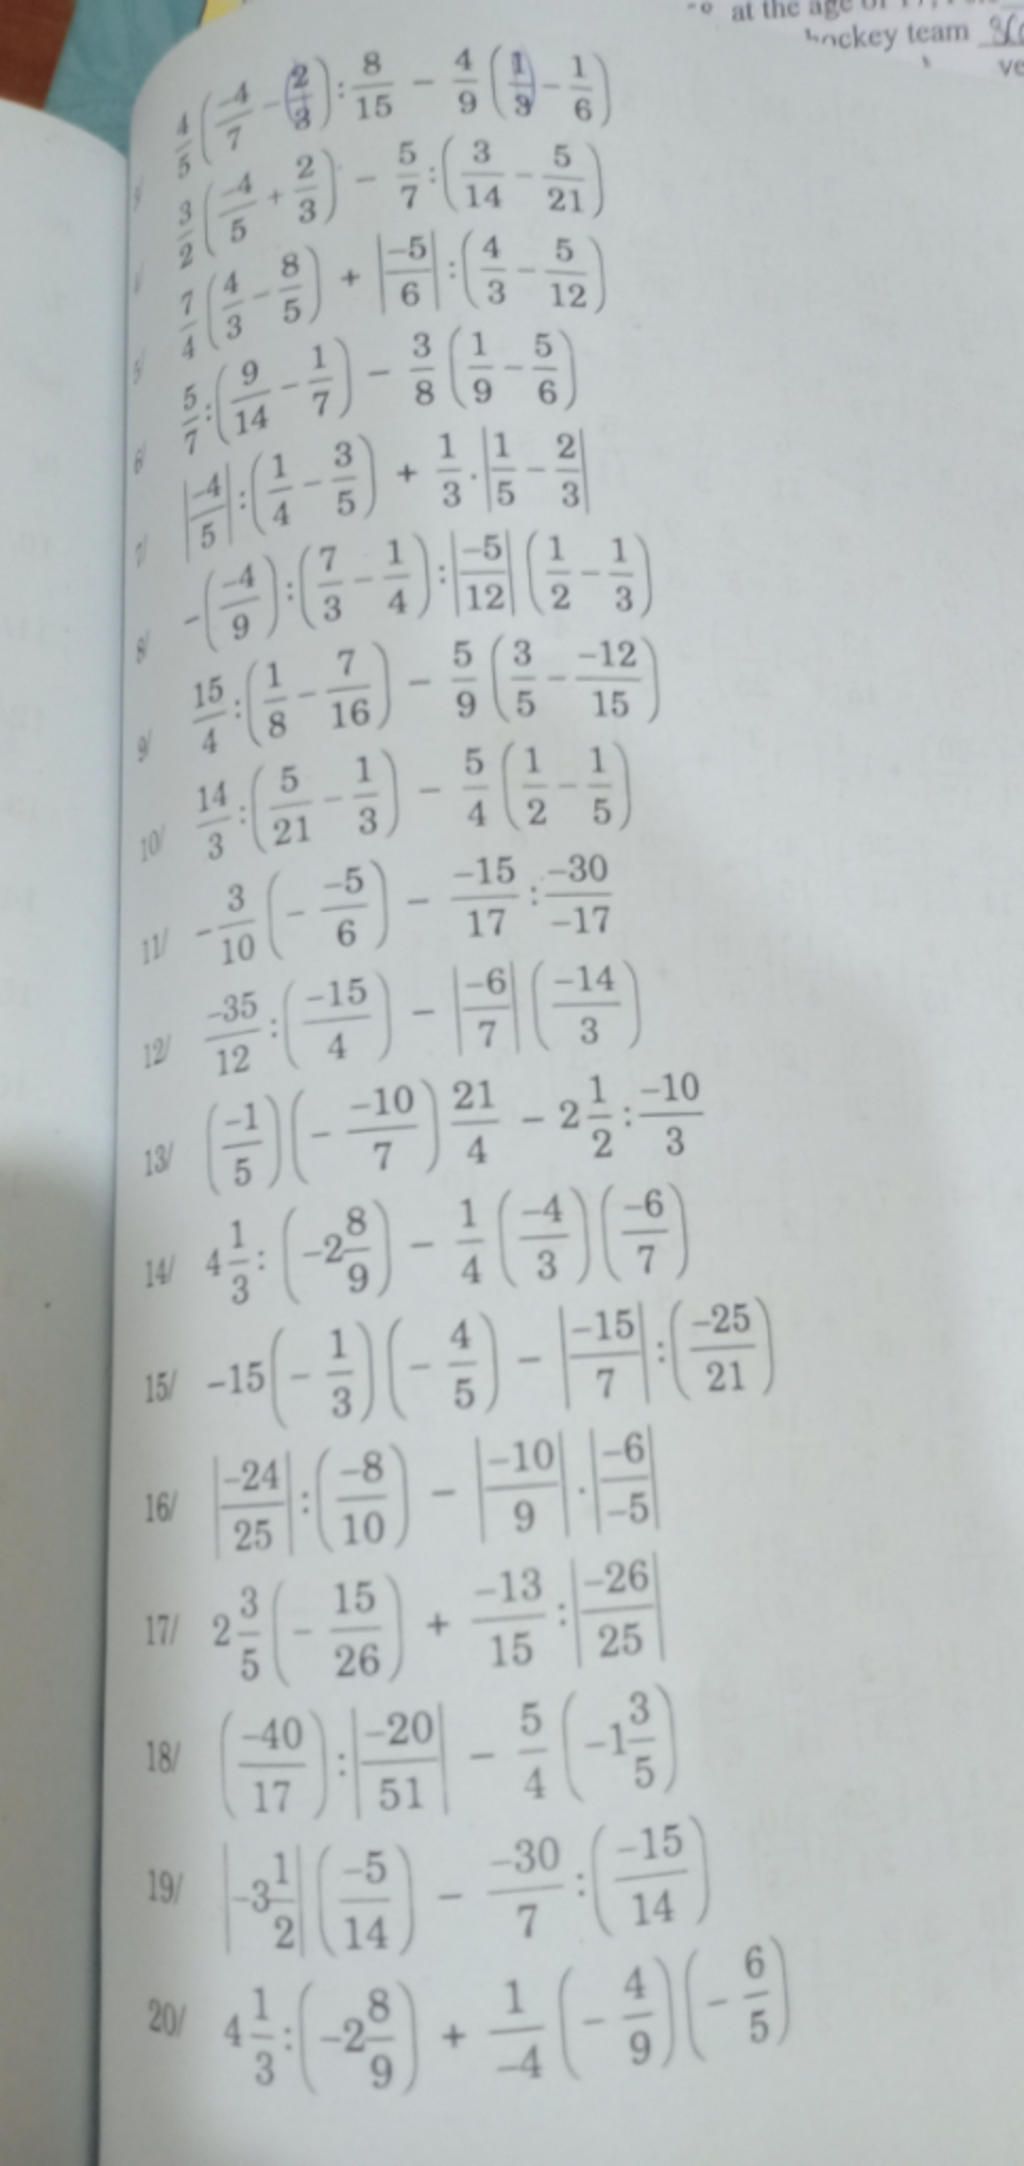 at the age of
hockey team
ve
4/5 (-4/7 - 2/3) : 8/15 - 4/9 (1/3 - 1/6)
3/2 (-4/5 + 2/3) - 5/7 : (3/14 - 5/21)
7/4 (4/3 - 8/5) + |-5/6| : (4/3 - 5/12)
5/7 : (9/14 - 1/7) - 3/8 (1/9 - 5/6)
7/ |-4/5| : (1/4 - 3/5) + 1/3 . |1/5 - 2/3|
8/ -(-4/9) : (7/3 - 1/4) : |-5/12| (1/2 - 1/3)
9/ 15/4 : (1/8 - 7/16) - 5/9 (3/5 - -12/15)
10/ 14/3 : (5/21 - 1/3) - 5/4 (1/2 - 1/5)
11/ -3/10 (- -5/6) - -15/17 : -30/-17
12/ -35/12 : (-15/4) - |-6/7| (-14/3)
13/ (-1/5) (- -10/7) 21/4 - 2 1/2 : -10/3
14/ 4 1/3 : (-2 8/9) - 1/4 (-4/3) (-6/7)
15/ -15 (- 1/3) (- 4/5) - |-15/7| : (-25/21)
16/ |-24/25| : (-8/10) - |-10/9| . |-6/-5|
17/ 2 3/5 (- 15/26) + -13/15 : |-26/25|
18/ (-40/17) : |-20/51| - 5/4 (-1 3/5)
19/ |-3 1/2| (-5/14) - -30/7 : (-15/14)
20/ 4 1/3 : (-2 8/9) + 1/-4 (- 4/9) (- 6/5)